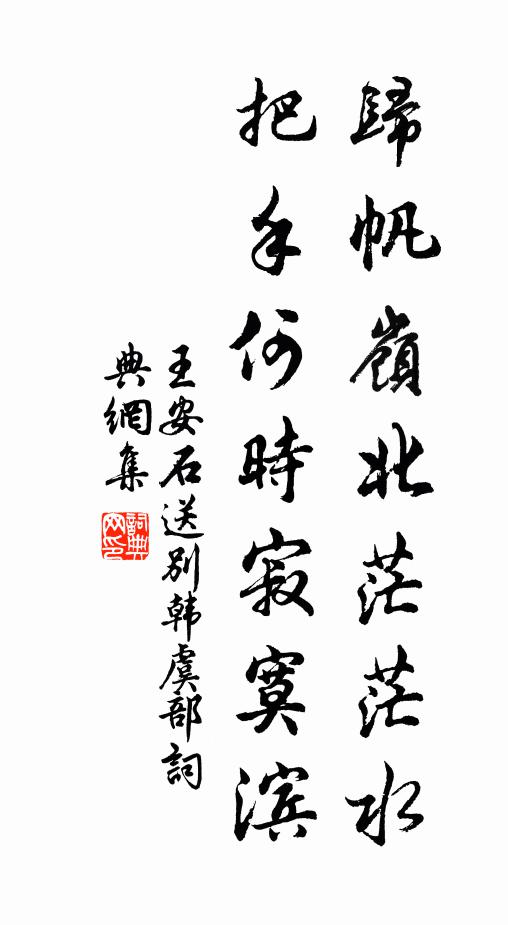 歸帆嶺北茫茫水
把手何時寂寞滨
王安石送别韩虞部詞
典網集
詞典
网印